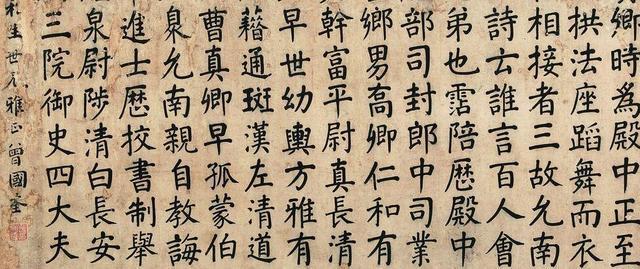 真卿時爲殿中正至
拱法座蹈舞而衣
相接者三故允南
詩云誰言百人會
弟也霑陪歷殿中
部司封郎中司業
鄉男喬卿仁和有
幹富平尉真長清
早世幼輿方雅有
藉通班漢左清道
曹真卿早孤蒙伯
臮允南親自教誨
進士歷校書制舉
泉尉陟清白長安
三院御史四大夫
生世兄雅正曾國荃